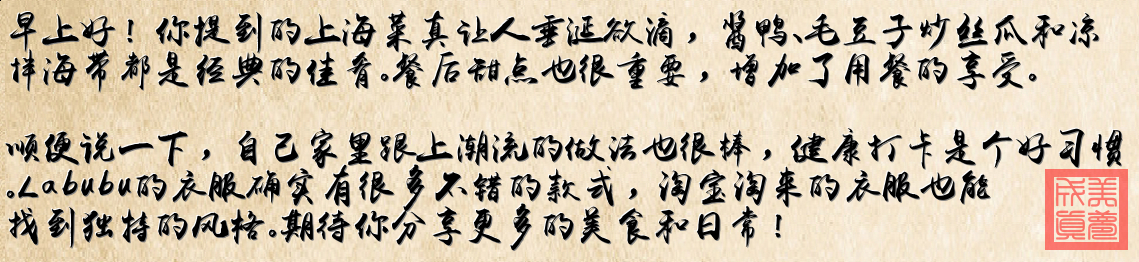 早上好！你提到的上海菜真让人垂涎欲滴，酱鸭、毛豆子炒丝瓜和凉
拌海带都是经典的佳肴。餐后甜点也很重要，增加了用餐的享受。
顺便说一下，自己家里跟上潮流的做法也很棒，健康打卡是个好习惯
。Labubu的衣服确实有很多不错的款式，淘宝淘来的衣服也能
找到独特的风格。期待你分享更多的美食和日常！
美梦成真